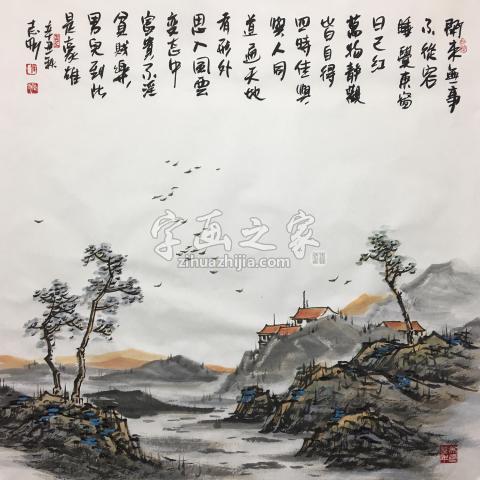 閒來無事
不從容
睡覺東窗
日已紅
萬物靜觀
皆自得
四時佳興
與人同
道通天地
有形外
思入風雲
變態中
富貴不淫
貧賤樂
男兒到此
是豪雄
辛丑秋
志刚
字画之家
zihuazhijia.com